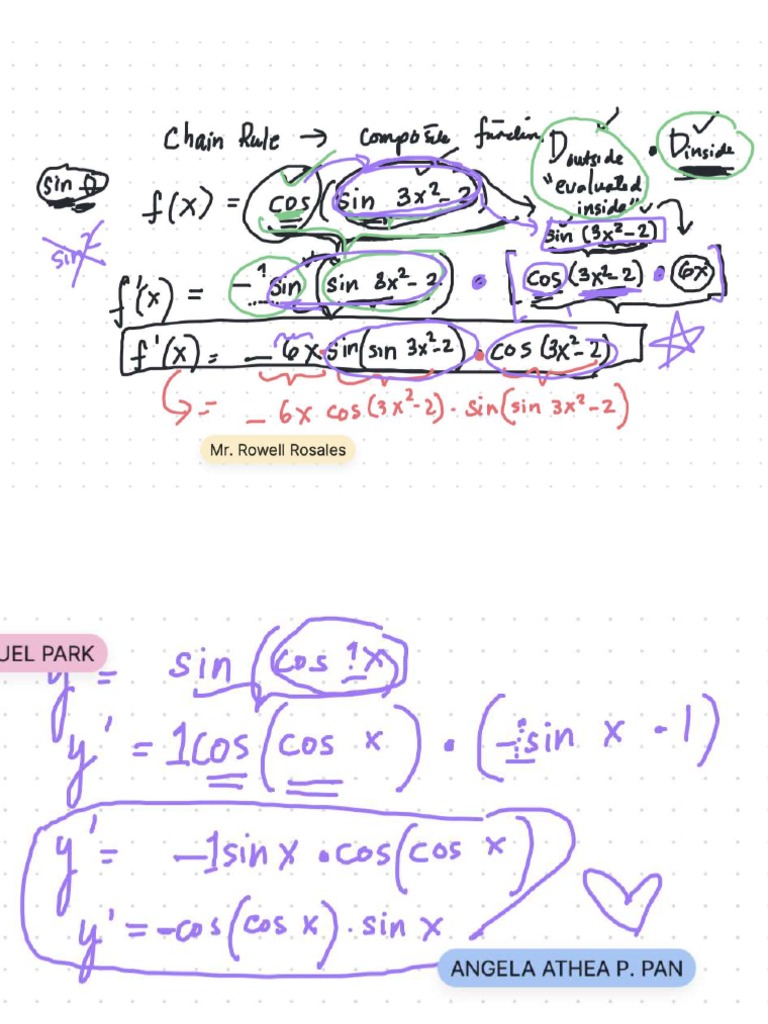 Chain Rule → Composite function D outside "evaluated inside" • D inside
sin θ
f(x) = cos (sin 3x² - 2)
sin (3x² - 2)
sin²
f'(x) = -1 sin (sin 3x² - 2) • [cos (3x² - 2) • 6x]
f'(x) = - 6x • sin (sin 3x² - 2) • cos (3x² - 2)
= - 6x cos (3x² - 2) · sin (sin 3x² - 2)
Mr. Rowell Rosales
UEL PARK
y = sin (cos 1x)
y' = 1cos (cos x) • (-1 sin x · 1)
y' = -1 sin x • cos (cos x)
y' = -cos (cos x) · sin x
ANGELA ATHEA P. PAN